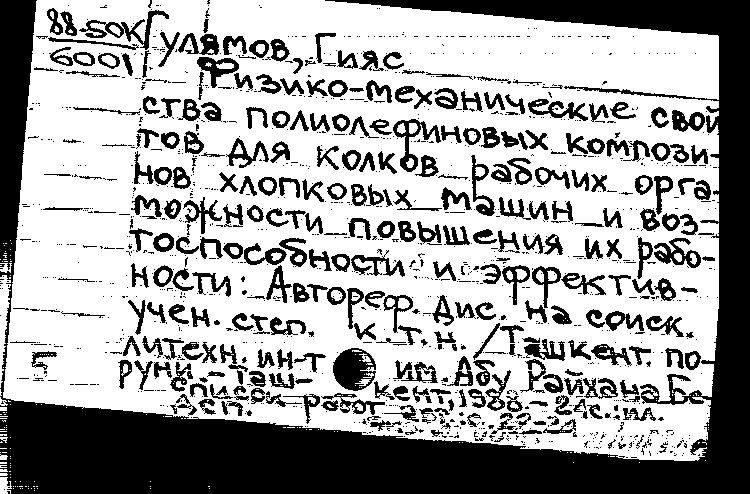 88-50К
6001
Гулямов, Гияс
Физико-механические свой
ства полиолефиновых компози-
тов для колков рабочих орга
нов хлопковых машин и воз-
можности повышения их рабо-
тоспособности и эффектив-
ности: Автореф. дис. на соиск.
учен. степ. к.т.н. / Ташкент. по-
литехн. ин-т им. Абу Райхана Бе-
руни. - Таш-
кент, 1988. - 24с.: ил.
Список работ авт.: с. 22-24
Деп.
5